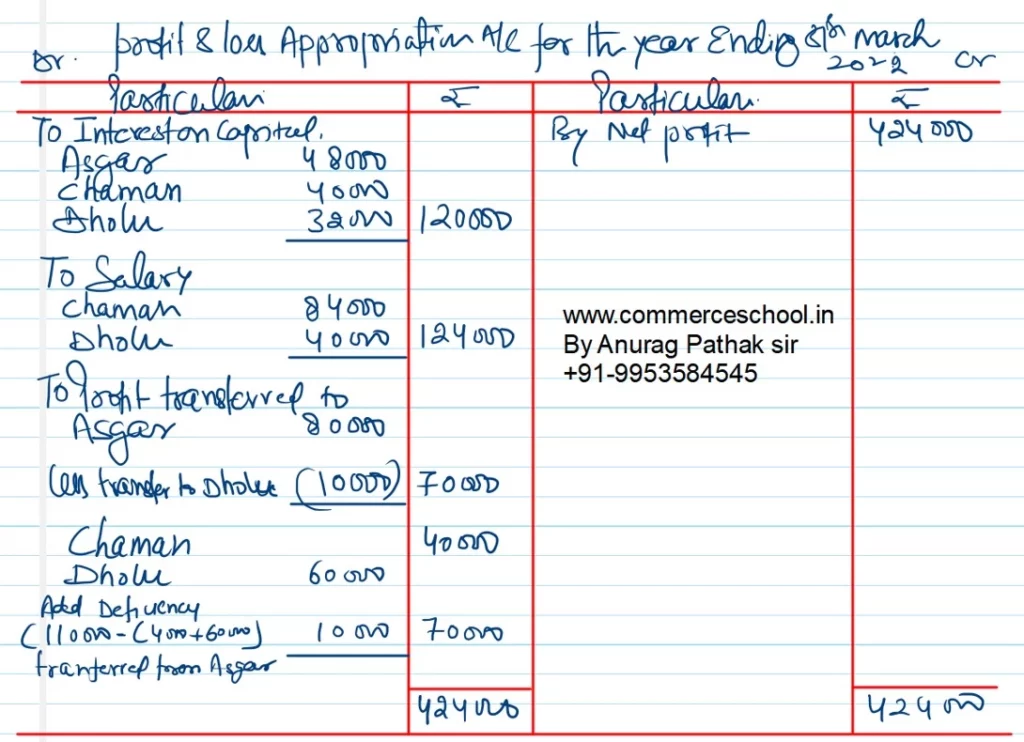 Profit & loss Appropriation A/c for the year Ending 31st March 2022
Dr. Cr
Particulars ₹ Particulars ₹
To Interest on Capital. By Net profit 424000
Asgar 48000
Chaman 40000
Dholu 32000 120000
To Salary
Chaman 84000
Dholu 40000 124000
www.commerceschool.in
By Anurag Pathak sir
+91-9953584545
To Profit transferred to
Asgar 80000
Less transfer to Dholu (10000) 70000
Chaman 40000
Dholu 60000
Add Deficiency
(110000-(40000+60000) 10000 70000
tranferred from Asgar
424000 424000